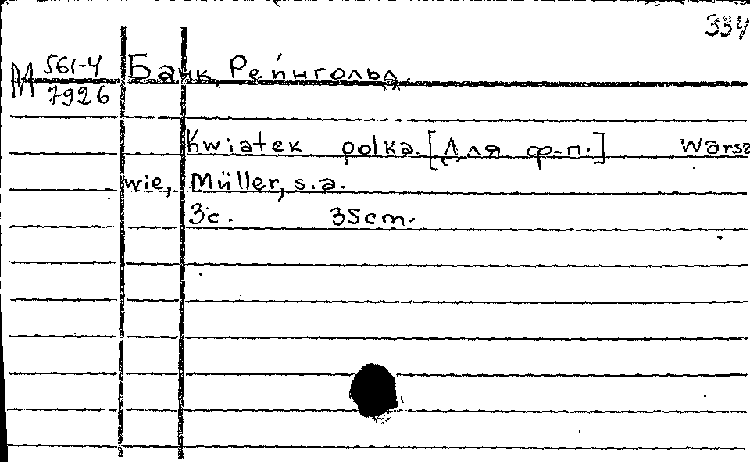 334
М 561-4
7926
Банк, Рейнгольд.
Kwiatek polka. [Для ф-п.] Warsza
wie, Müller, s.a.
3с. 35cm.